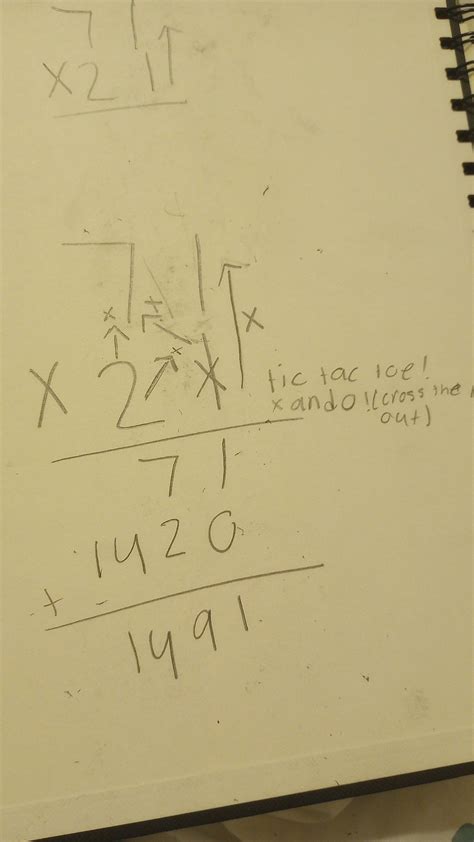 71
x21
7 1
x 21
tic tac toe!
x and o! (cross the
out)
71
1420
+
1491